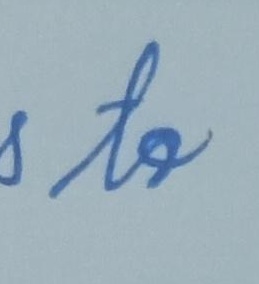 s to